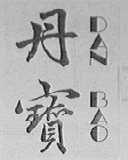 丹
寶
DAN
BAO